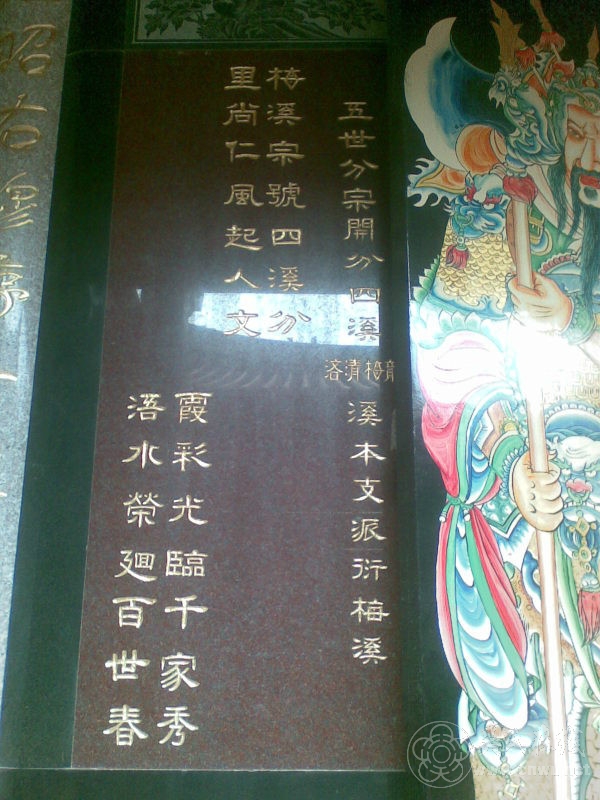 五世分宗開分四溪
齊梅清浯
溪本支派衍梅溪
梅溪宗號四溪分
里尚仁風起人文
霞彩光臨千家秀
浯水榮廻百世春